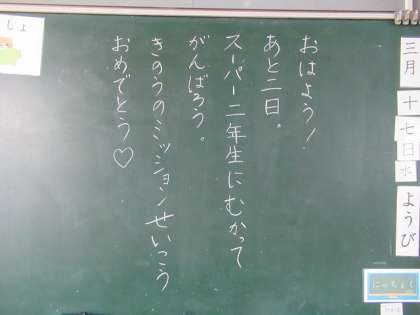 おはよう！
あと二日。
スーパー二年生にむかって
がんばろう。
きのうのミッションせいこう
おめでとう♡
三月
十七日
水
ようび
にっちょく
しょ